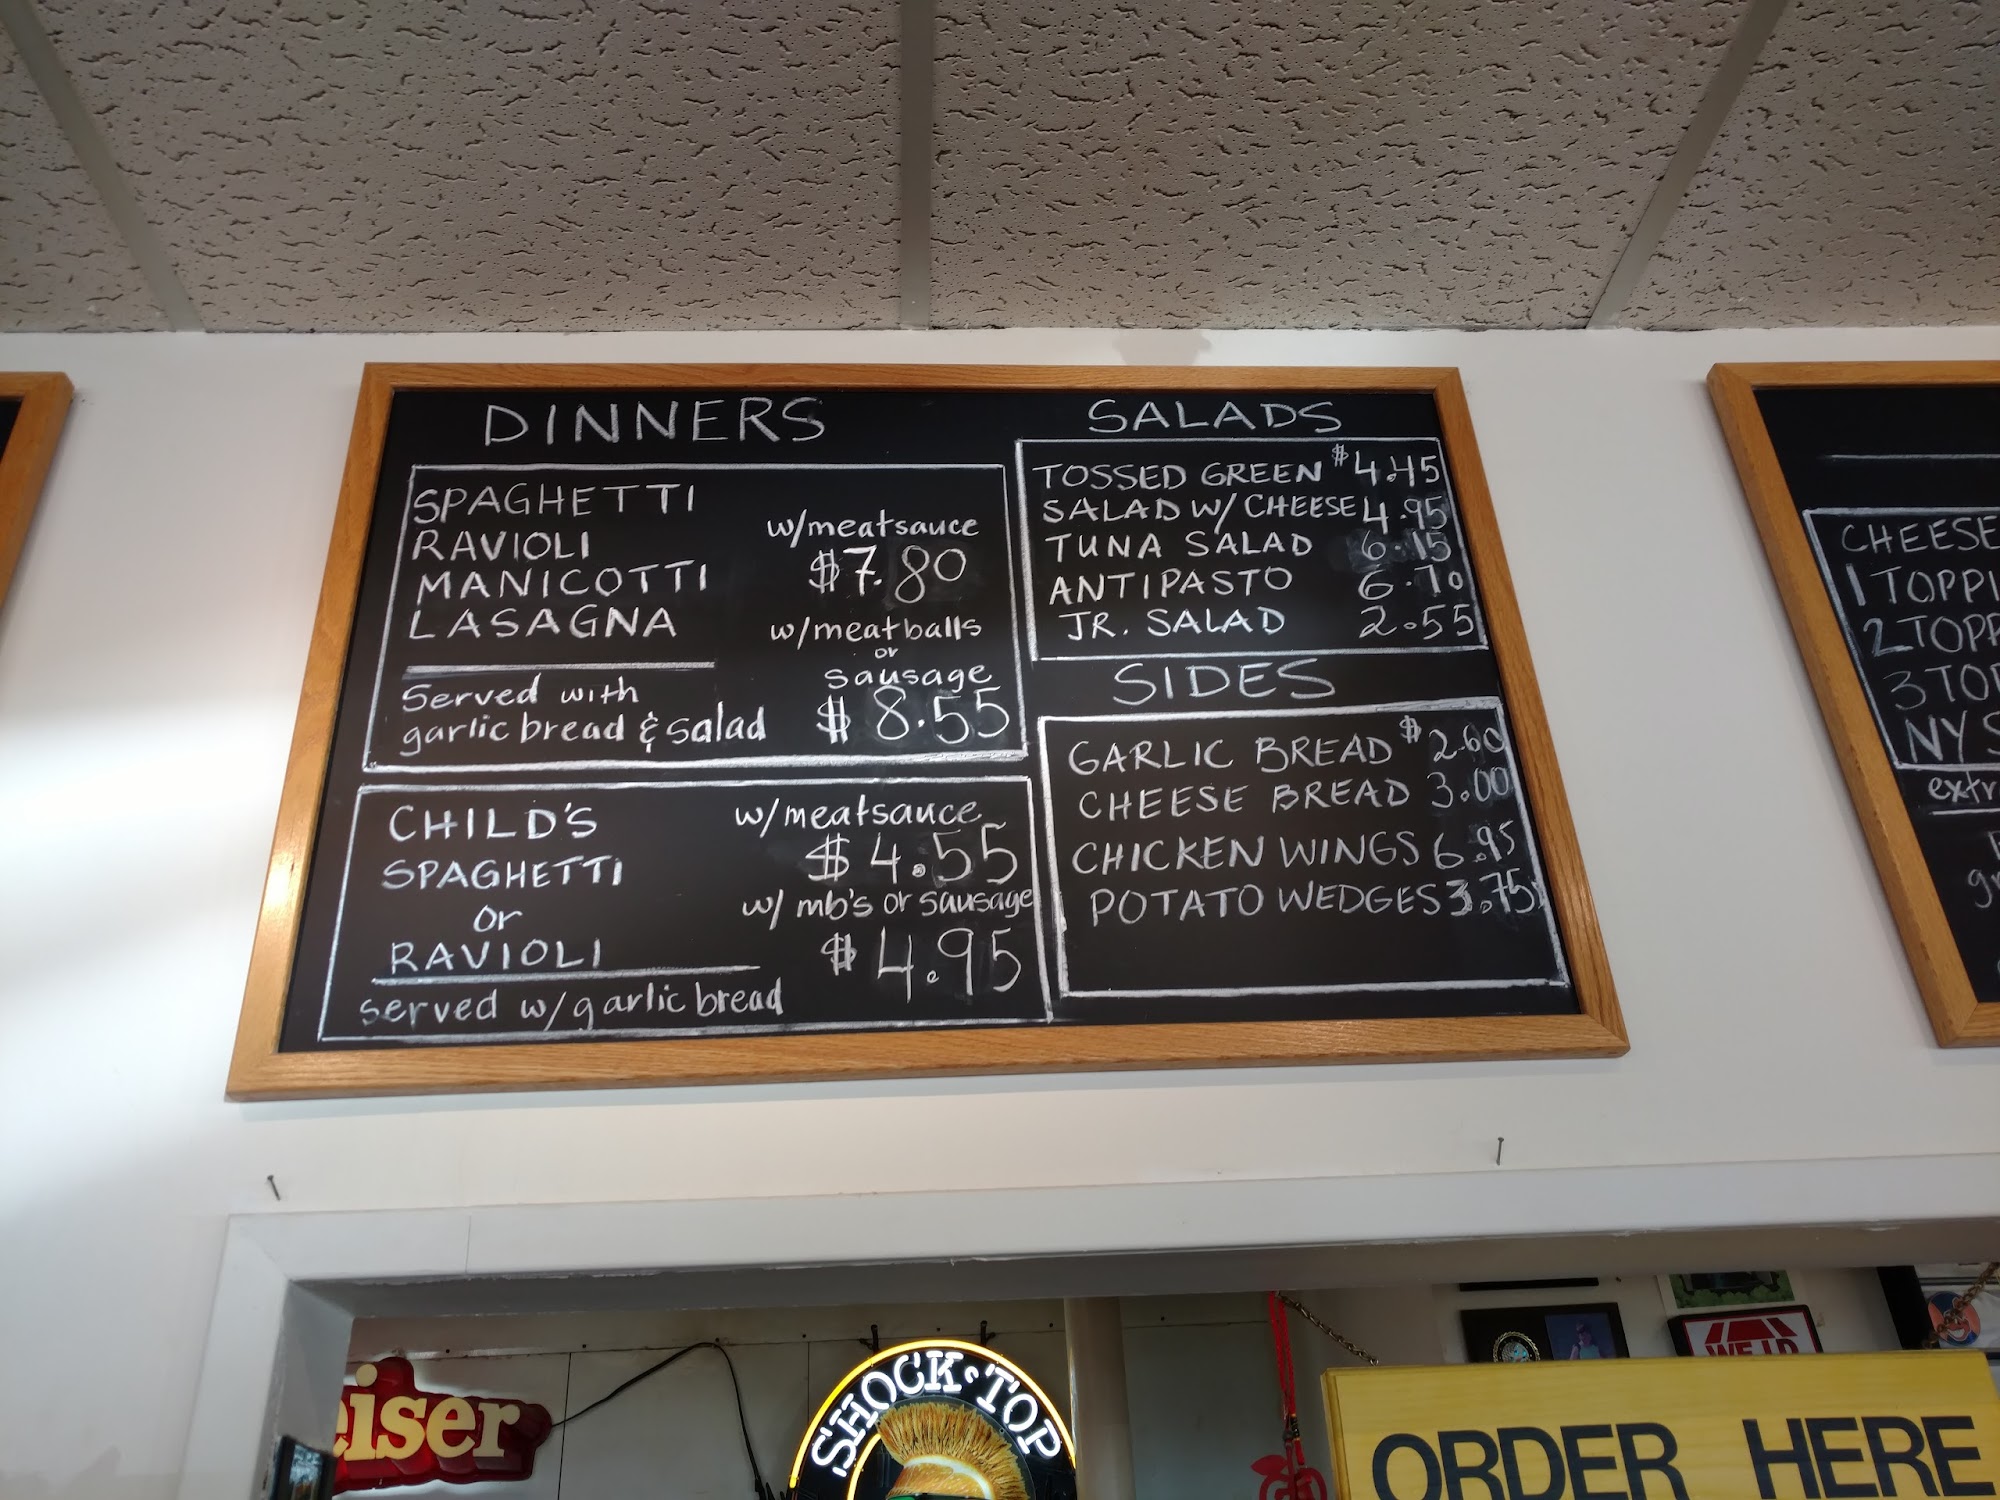 DINNERS
SPAGHETTI
RAVIOLI
MANICOTTI
LASAGNA
w/meatsauce
$7.80
w/meatballs
or
sausage
$8.55
Served with
garlic bread & salad
CHILD'S
SPAGHETTI
or
RAVIOLI
served w/garlic bread
w/meatsauce
$4.55
w/ mb's or sausage
$4.95
SALADS
TOSSED GREEN $4.45
SALAD W/ CHEESE 4.95
TUNA SALAD 6.15
ANTIPASTO 6.70
JR. SALAD 2.55
SIDES
GARLIC BREAD $2.60
CHEESE BREAD 3.00
CHICKEN WINGS 6.95
POTATO WEDGES 3.75
CHEESE
1 TOPPI
2 TOPP
3 TOP
NY S
extr
eiser
SHOCK TOP
ORDER HERE